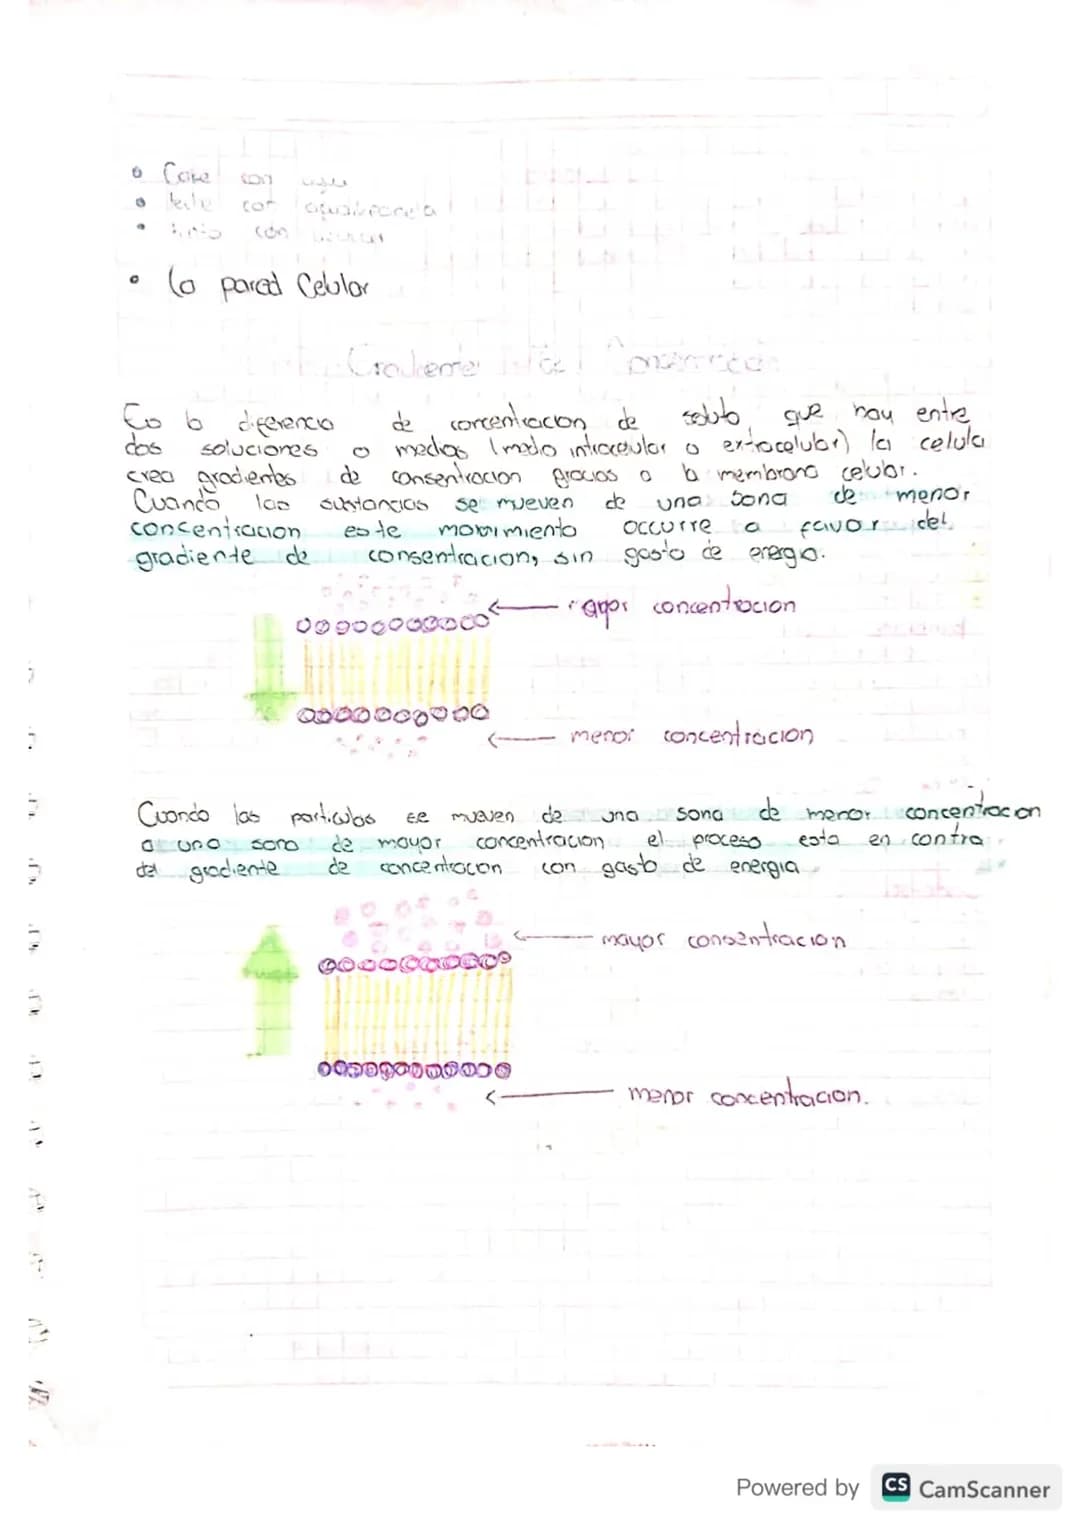 • Cafe con
• leche con aguapanela
• tinto con
• la pared Celular
Gradiente de Concentracion
Es la diferencia de concentracion de soluto, que hay entre
dos soluciones o medios (medio intracelular o extracelular) la celula
crea gradientes de consentracion gracias a la membrana celular.
Cuando las sustancias se mueven de una sona de menor
concentracion este movimiento occurre a favor del
gradiente de consentracion, sin gasto de energia.
mayor concentracion
menor concentracion
Cuando las particulas se mueven de una sona de menor concentracion
a una sona de mayor concentracion el proceso esta en contra
del gradiente de concentracion con gasto de energia
mayor consentracion
menor concentracion.
Powered by CS CamScanner